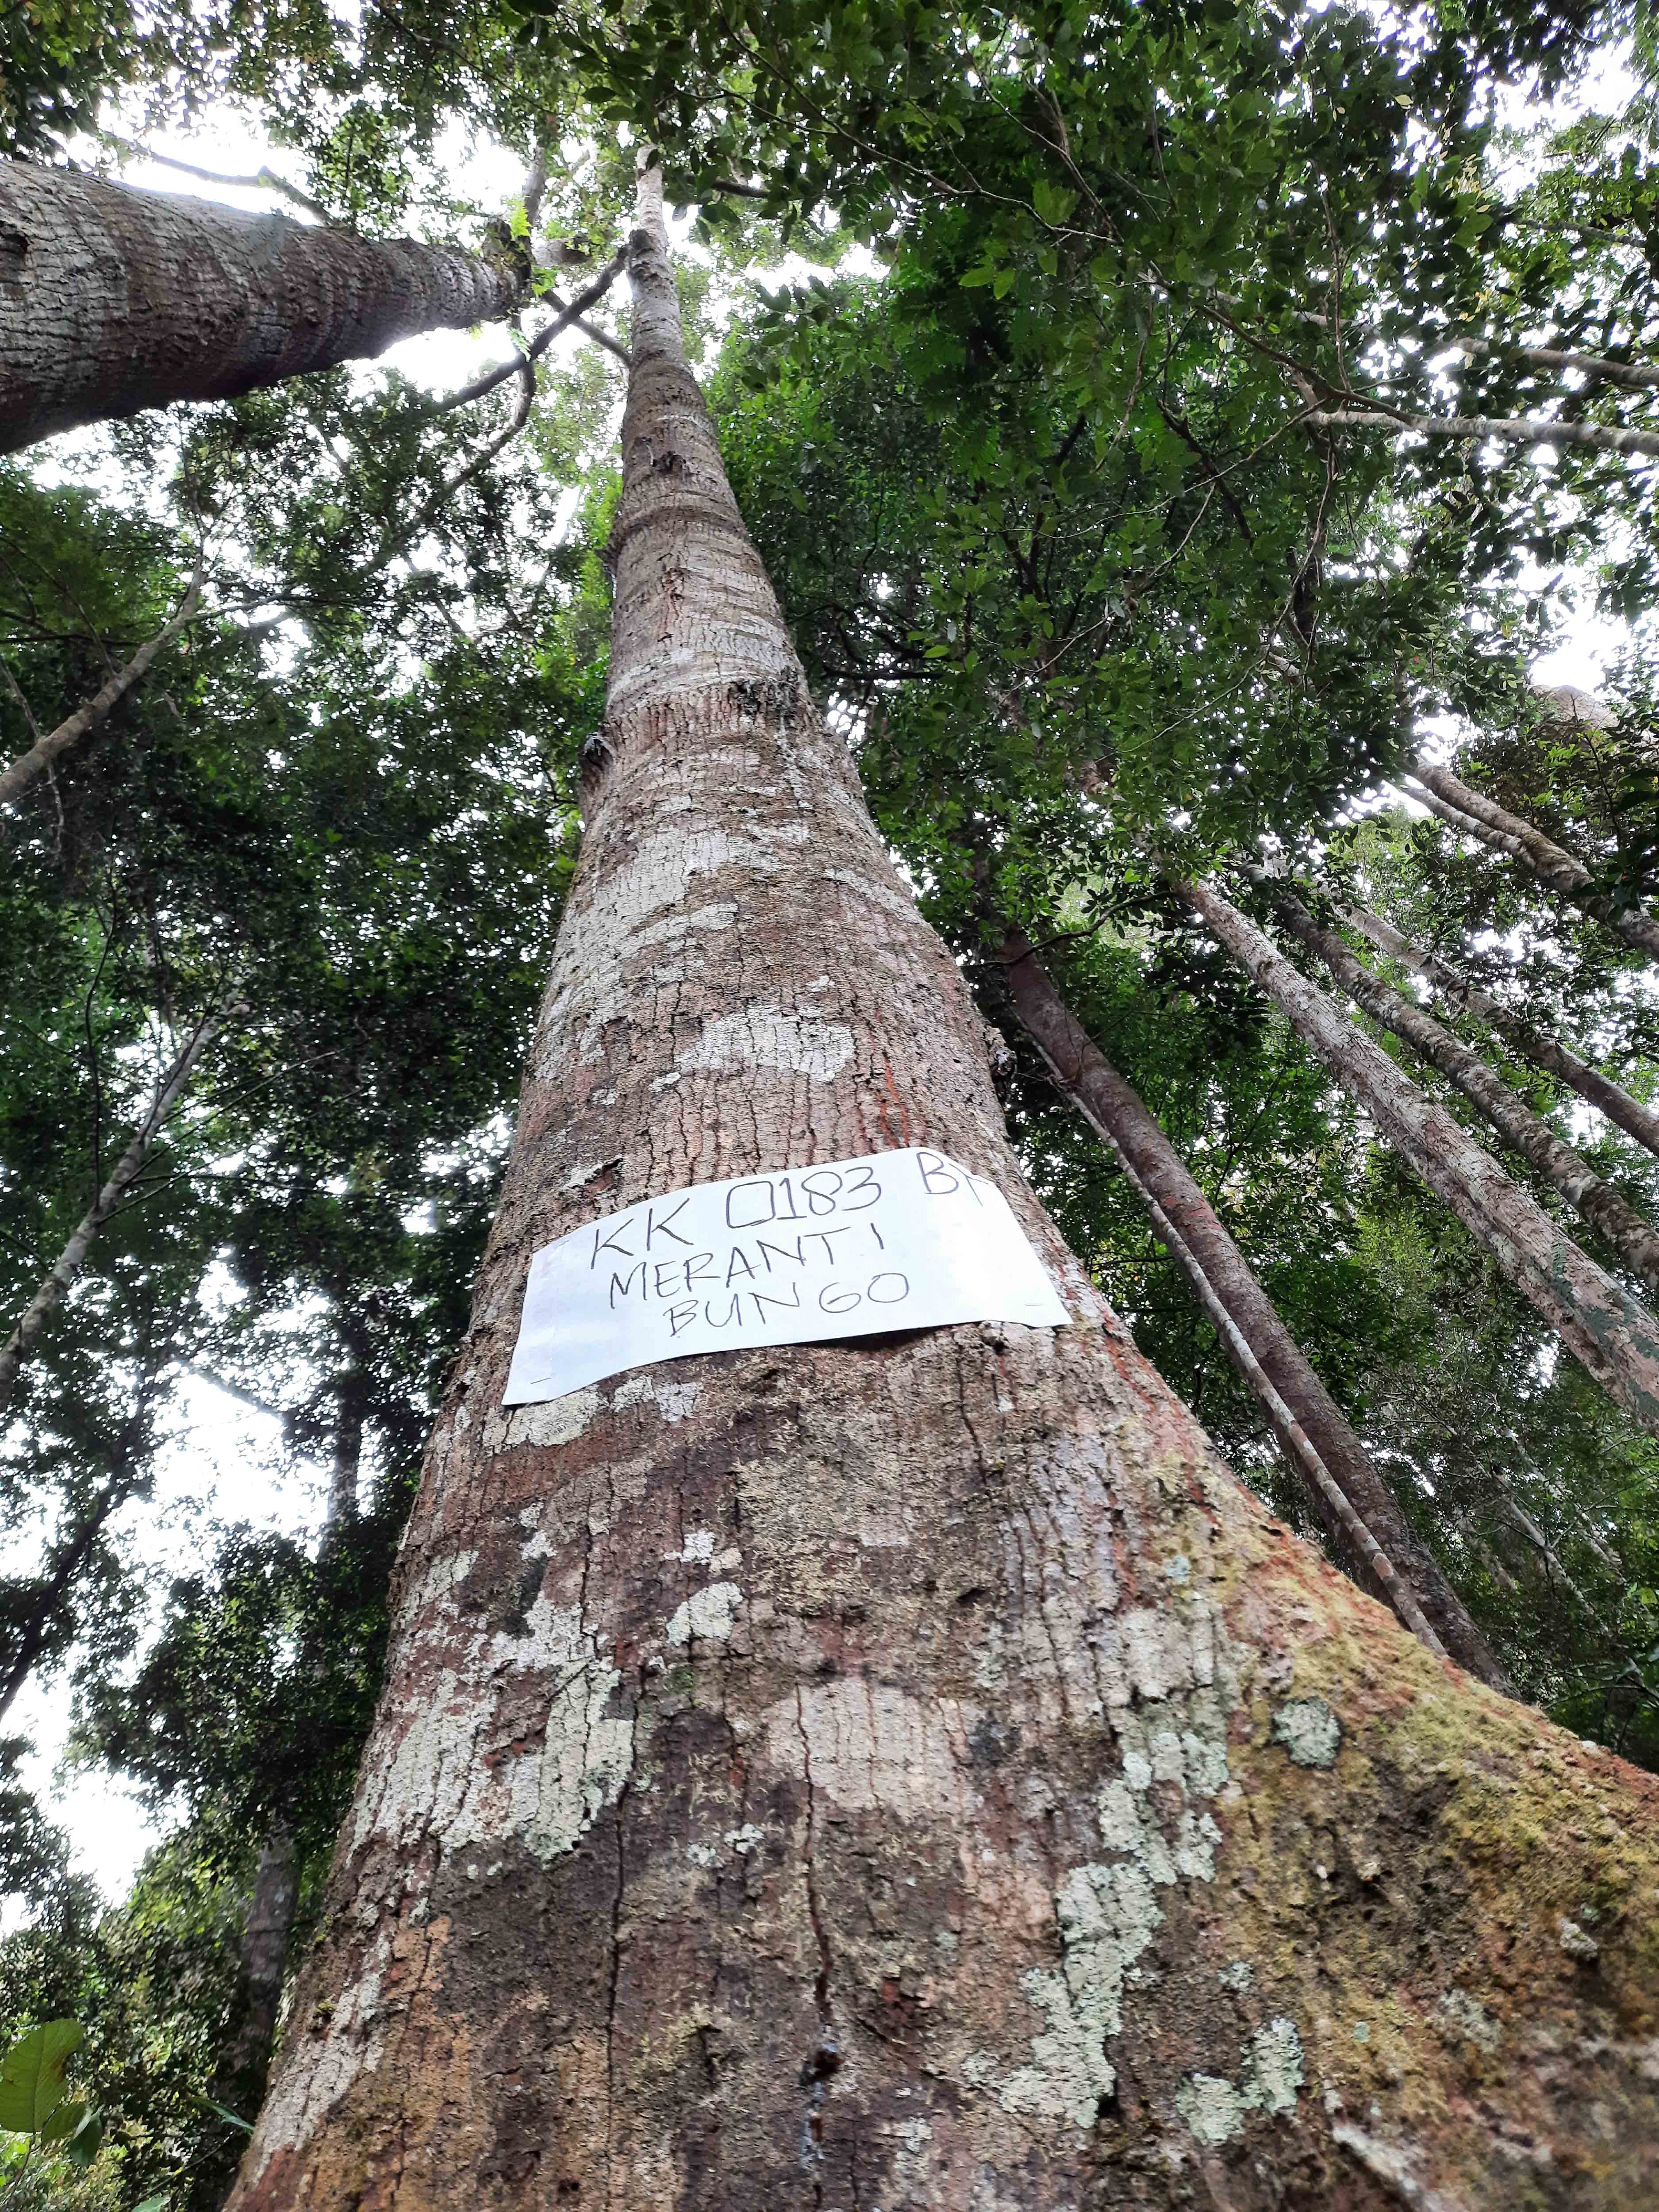 KK 0183
MERANTI
BUNGO